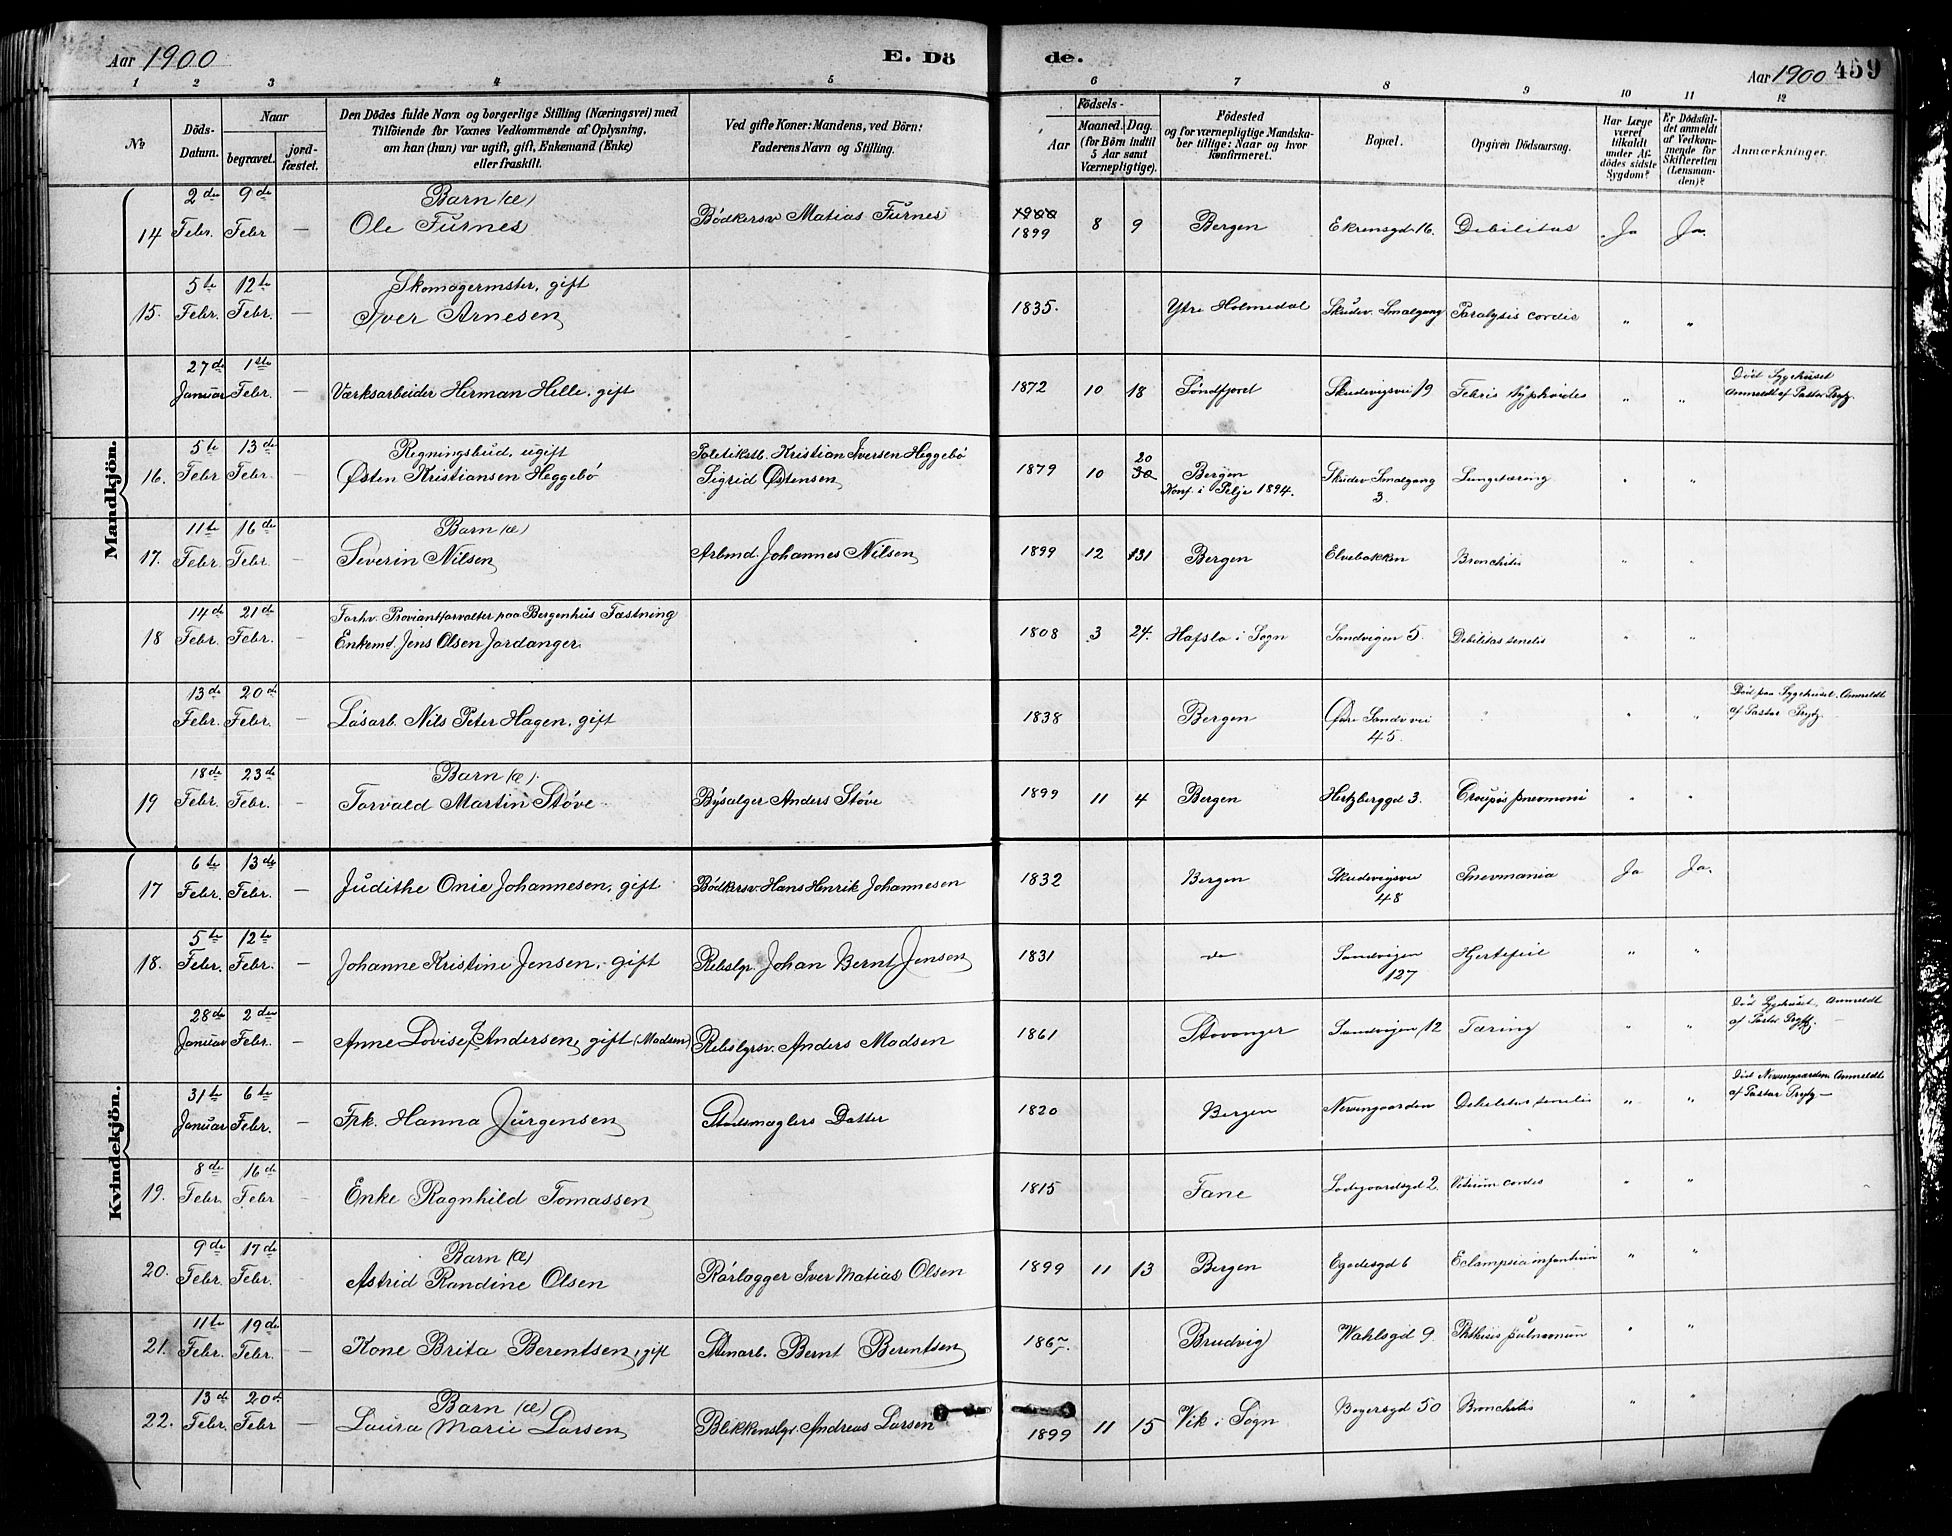 Aar 1900 E. Dö de. Aar 1900 459
1 2 3 4 5 6 7 8 9 10 11 12
No
Döds-Datum.
Naar
begravet.
jordfæstet.
Den Dödes fulde Navn og borgerlige Stilling (Næringsvei) med
Tilföiende for Voxnes Vedkommende af Oplysning,
om han (hun) var ugift, gift, Enkemand (Enke)
eller fraskilt.
Ved gifte Koner: Mandens, ved Börn:
Faderens Navn og Stilling.
Födsels-
Aar
Maaned. Dag.
(for Börn indtil
5 Aar samt
Værnepligtige).
Födested
og for værnepligtige Mandska-
ber tillige: Naar og hvor
konfirmeret.
Bopæl.
Opgiven Dödsaarsag.
Har Læge
været
tilkaldt
under Af-
dödes sidste
Sygdom?
Er Dödsfal-
det anmeldt
af Vedkom-
mende for
Skifteretten
(Lensman-
den)?
Anmærkninger.
Mandkjön.
2de 9de Barn (æ)
14 Febr. Febr — Ole Furnes Bødkersv Matias Furnes 1900 1899 8 9 Bergen Ekrensgd. 16. Debilitas Ja Ja.
5te 12te Skomagermster, gift
15. Febr. Febr. — Iver Arnesen 1835. Ytre Holmedal Skudev. Smalgang Paralysis cordis " "
27de 1ste Død Sygehuset
Januar Febr. — Værksarbeider Herman Hille, gift 1872 10 18 Søndfjoret Skudevigsvei 19 Febris typhoides " " Anmeldt af Pastor Prytz.
5te 13de Regningsbud, ugift Politikstb. Kristian Iversen Heggebø
16. Febr Febr. — Østen Kristiansen Heggebø Sigrid Østensen 1879 10 20 30 Bergen Skudev Smalgang Lungetæring " "
Konf. i Pelje 1894. 3.
11te 16de Barn (æ)
17. Febr. Febr. — Severin Nilsen Arbmd. Johannes Nilsen 1899 12 31 Bergen Elvebakken Bronchitis " "
14de 21de Forhv. Proviantforvalter paa Bergenhus Fæstning
18 Febr. Febr. — Enkemd. Jens Olsen Jordanger 1808 3 24. Hafslo i Sogn Sandvigen 5. Debilitas senilis " "
13de 20de Død paa Sygehuset. Anmeldt
Febr. Febr. — Løsarb. Nils Peter Hagen, gift 1838 Bergen Øvre Sandvvei " " " af Pastor Prytz
45.
18de 23de Barn (æ).
19 Febr. Febr. — Torvald Martin Støve Bysælger Anders Støve 1899 11 4 Bergen Hertzberggd 3. Croupøs pnevmoni " "
Kvindekjön.
6te 13de
17 Febr. Febr. — Judithe Onie Johannesen, gift Bødkersv. Hans Henrik Johannesen 1832 Bergen Skudevigsvei Pnevmania Ja Ja.
48
5te 12te
18. Febr. Febr. — Johanne Kristine Jensen, gift Rebslgr. Johan Bernt Jensen 1831 do Sandvigen Hjertefeil " "
127
28de 2den Død Sygehuset, Anmeldt
Januar Febr. — Anne Lovise Andersen, gift (Madsen) Rebslgrsv. Anders Madsen 1861 Stavanger Sandvigen 12 Tæring " " af Pastor Prytz. —
31te 6te Død Nevengaarden Anmeldt
Januar Febr. — Frk. Hanna Jürgensen Stadsmæglers Datter 1820 Bergen Nevengaarden Debilitas senilis " " af Pastor Prytz —
8de 16de
19. Febr. Febr — Enke Ragnhild Tomassen 1815 Fane Ladegaardsgd 2. Vitium cordis " "
9de 17de Barn (æ)
20. Febr. Febr. — Astrid Randine Olsen Rørlægger Iver Matias Olsen 1899 11 13 Bergen Egedesgd 6 Eclampsia infantum " "
11te 19de
21. Febr. Febr. — Kone Brita Berentsen, gift Stenarb. Bernt Berentsen Brudvig Wahlsgd 9. Phthisis pulmonum " "
13de 20de Barn (æ)
22. Febr. Febr — Laura Marie Larsen Blikkenslgr. Andreas Larsen 1899 11 15 Vik i Sogn Bøyersgd 50 Bronchitis " "